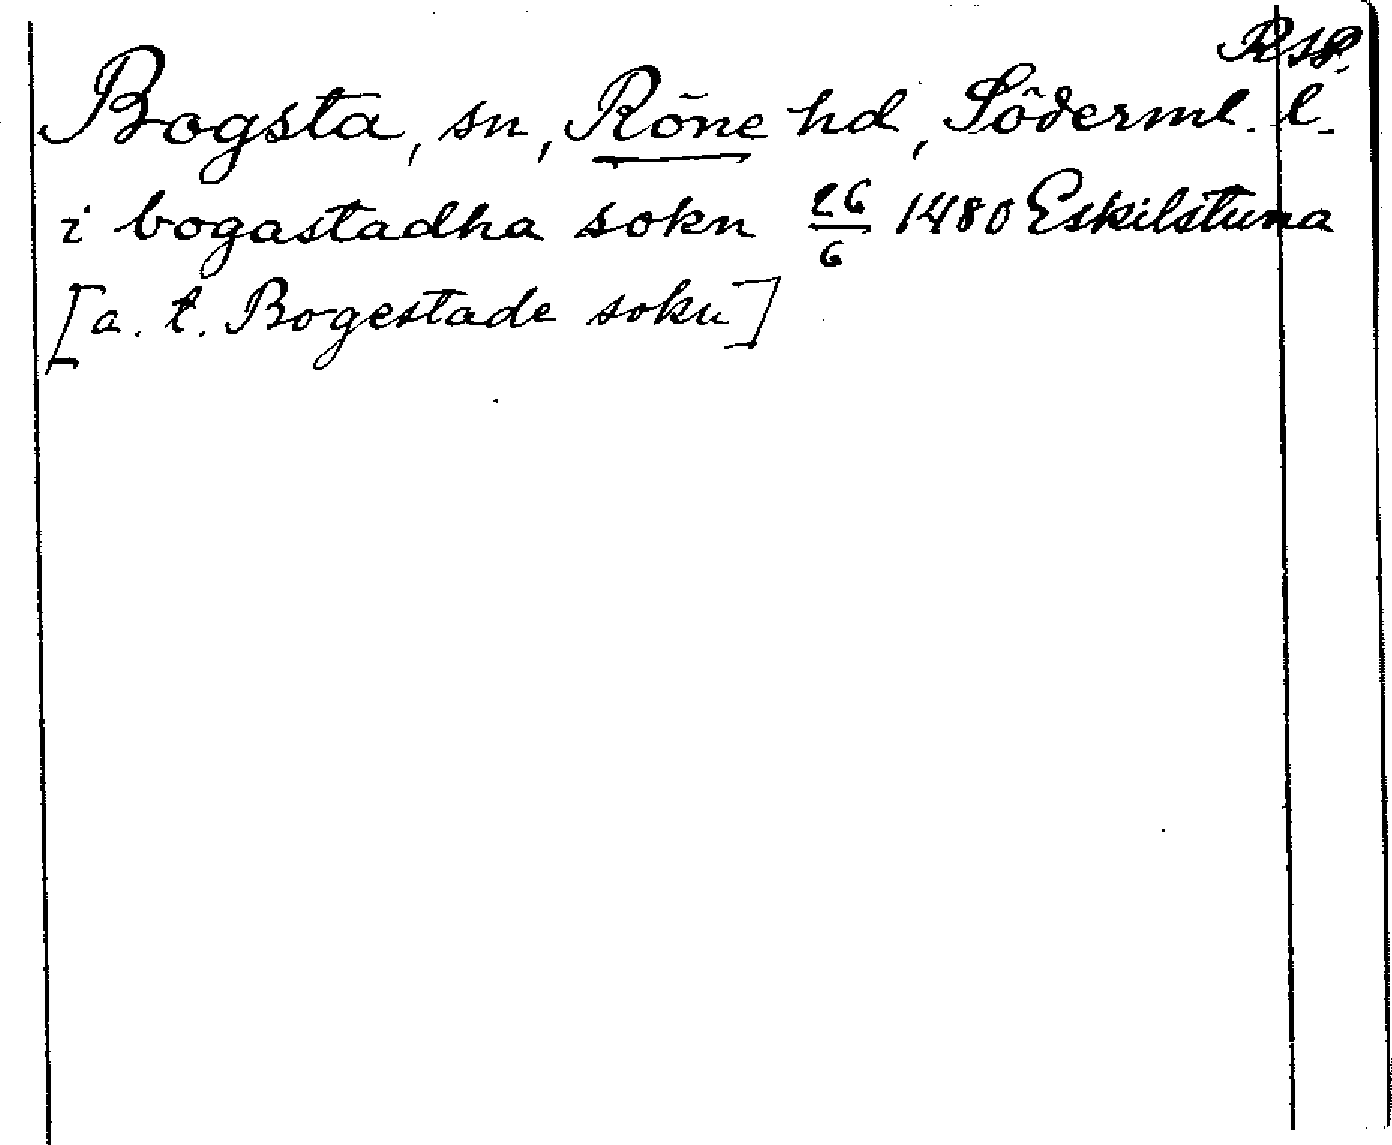 RSP.
Bogsta, sn, Röne hd, Söderml. l.
i bogastadha sokn 26/6 1480 Eskilstuna
[a. t. Bogestade sokn]